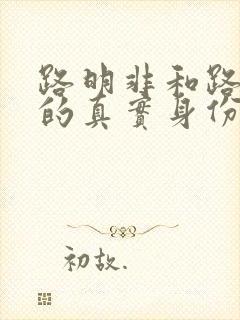 路明非和路
的真實身份
初故.